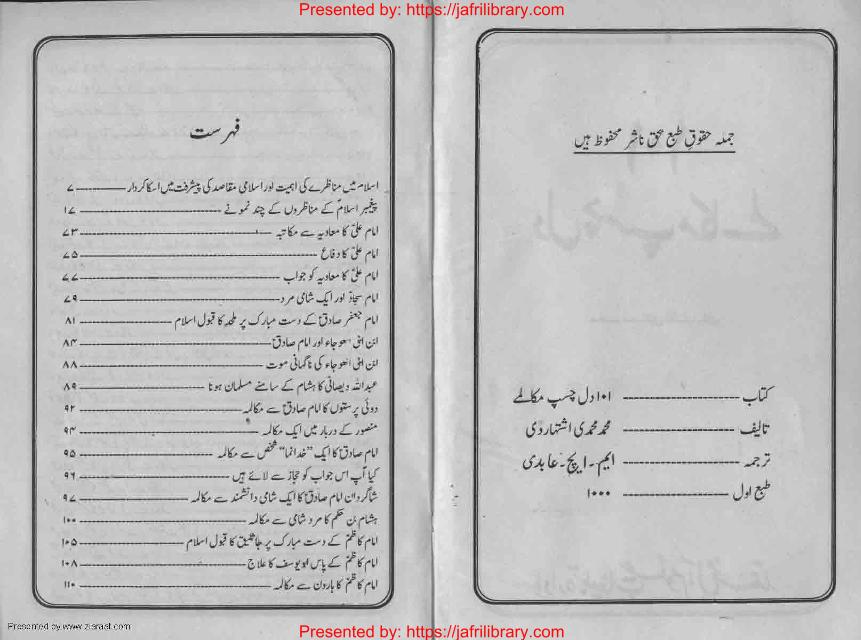 Presented by: https://jafrilibrary.com
جملہ حقوق طبع بحق ناشر محفوظ ہیں
کتاب ـــــــ ۱۰۱ دل چسپ مکالمے
تالیف ـــــــ محمد محمدی اشتہاردی
ترجمہ ـــــــ ایم ۔ ایچ ۔ عابدی
طبع اول ـــــــ ۱۰۰۰
فہرست
اسلام میں مناظرے کی اہمیت اور اسلامی مقاصد کی پیشرفت میں اسکا کردار ـــــــ ۷
پیغمبر اسلامؐ کے مناظروں کے چند نمونے ـــــــ ۱۷
امام علیؑ کا معاویہ سے مکاتبہ ـــــــ ۷۳
امام علیؑ کا دفاع ـــــــ ۷۵
امام علیؑ کا معاویہ کو جواب ـــــــ ۷۷
امام سجادؑ اور ایک شامی مرد ـــــــ ۷۹
امام جعفر صادقؑ کے دست مبارک پر ملحد کا قبول اسلام ـــــــ ۸۱
ابن ابی العوجاء اور امام صادقؑ ـــــــ ۸۴
ابن ابی العوجاء کی ناگہانی موت ـــــــ ۸۸
عبداللہ دیصانی کا ہشام کے سامنے مسلمان ہونا ـــــــ ۸۹
دوئی پرستوں کا امام صادقؑ سے مکالمہ ـــــــ ۹۲
منصور کے دربار میں ایک مکالمہ ـــــــ ۹۳
امام صادقؑ کا ایک "خدا نما" شخص سے مکالمہ ـــــــ ۹۵
کیا آپ اس جواب کو حجاز سے لائے ہیں ـــــــ ۹۶
شاگردان امام صادقؑ کا ایک شامی دانشمند سے مکالمہ ـــــــ ۹۷
ہشام بن حکم کا مرد شامی سے مکالمہ ـــــــ ۱۰۰
امام کاظمؑ کے دست مبارک پر جاثلیق کا قبول اسلام ـــــــ ۱۰۵
امام کاظمؑ کے پاس ابو یوسف کا علاج ـــــــ ۱۰۸
امام کاظمؑ کا ہارون سے مکالمہ ـــــــ ۱۱۰
Presented by www.ziaraat.com
Presented by: https://jafrilibrary.com